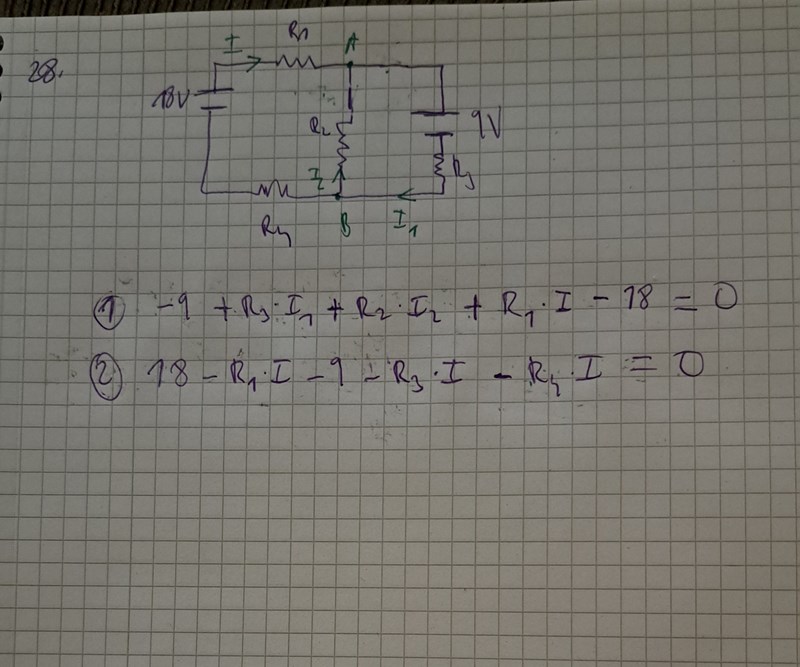 28.
I R1 A
18V R2 9V
I2 R3
R4 B I1
① -9 + R3·I1 + R2·I2 + R1·I - 18 = 0
② 18 - R1·I - 9 - R3·I - R4·I = 0